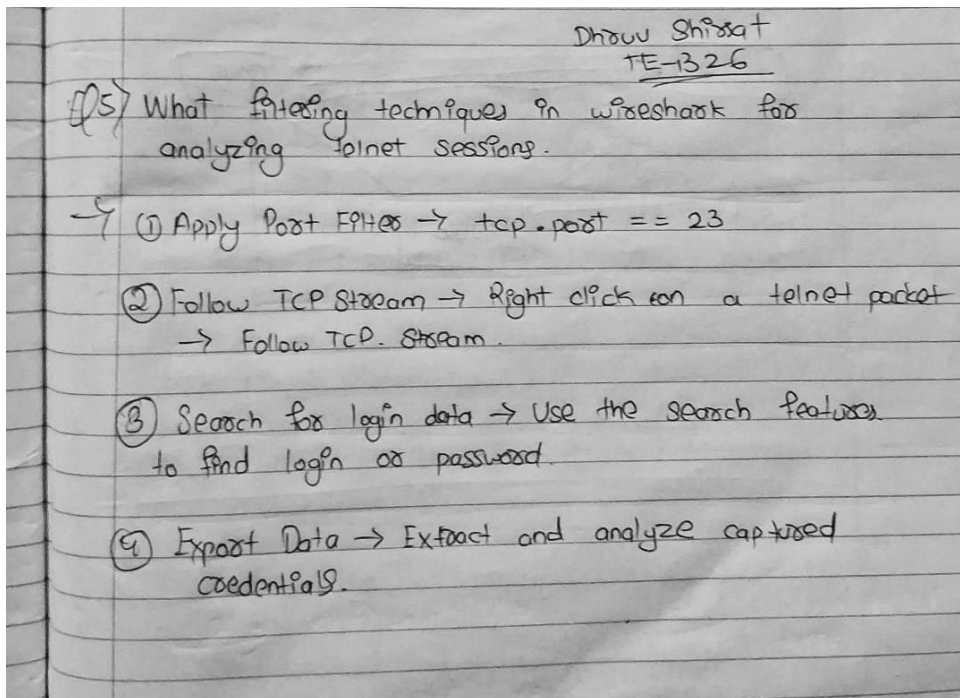 Dhruv Shirsat
TE-B 26
Q5) What filtering techniques in wireshark for
analyzing Telnet sessions.
→ ① Apply Port Filter → tcp.port == 23
② Follow TCP Stream → Right click on a telnet packet
→ Follow TCP. Stream.
③ Search for login data → Use the search features
to find login or password.
④ Export Data → Extract and analyze captured
credentials.